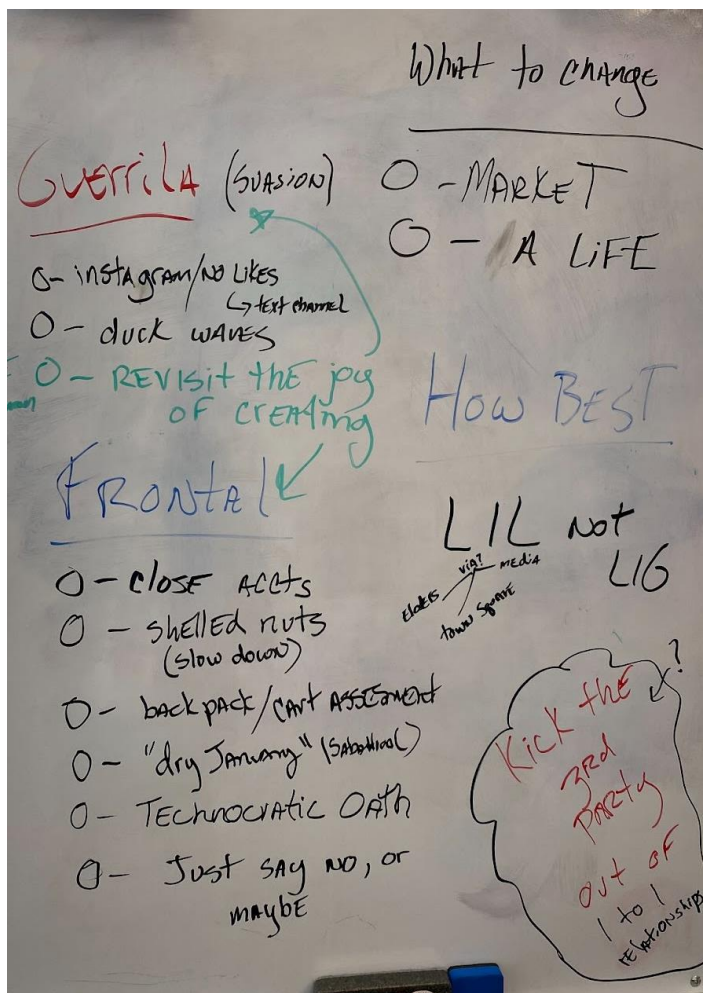 What to change
O - MARKET
O - A LIFE
GUERRILA (SUASION)
O- instagram/NO LIKES
↳ text channel
O - duck waves
O - REVISIT the joy
OF CREATING
FRONTAL
O - close ACCTS
O - shelled nuts
(slow down)
O - backpack/CART
O - "dry January"
O - TECHNOCRATIC OATH
O - Just say no, or
maybe
HOW BEST
LIL not
LIG
via?
media
Elders
town square
?
Kick the
3rd
PARTY
out of
1 to 1
relationships